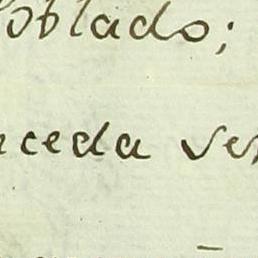 oblado;
ceda ver